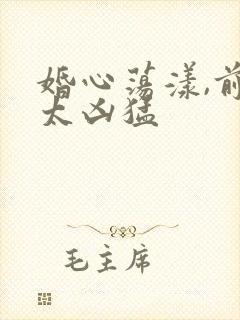 婚心荡漾,前
太凶猛
毛主席